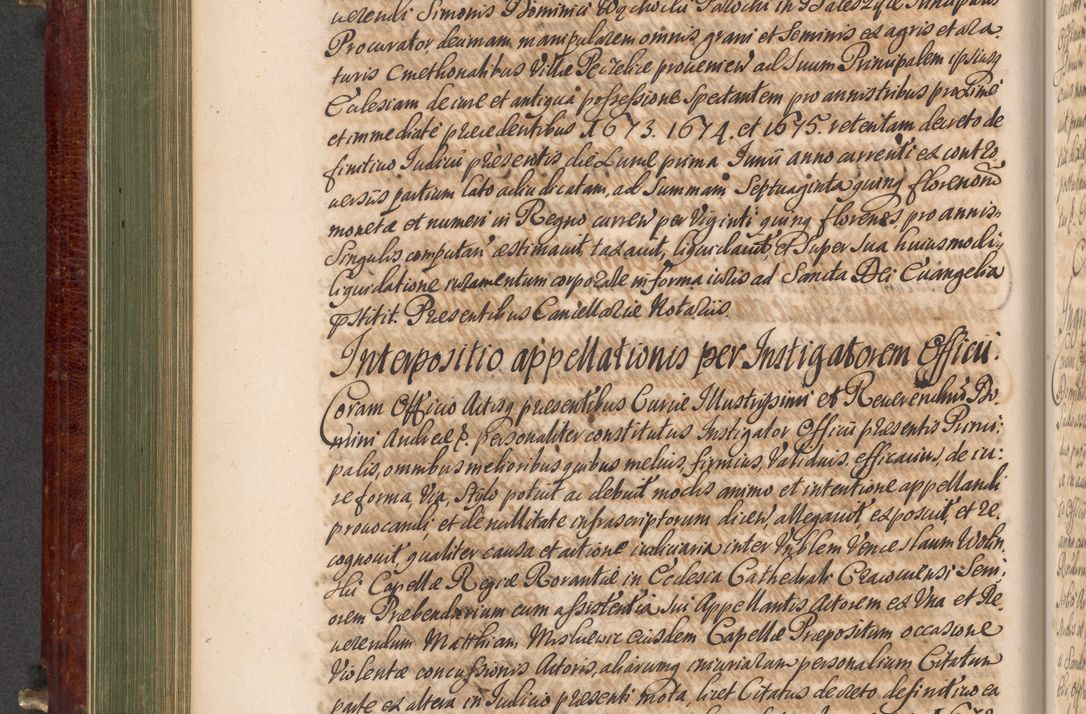 uerendi Simonis Dominici Wychocki Parochi in
Procurator decimam manipularem omnis grani et Seminis ex agris et ara
turis Cmethonalibus Villæ proueniен ad Suum Principalem ipsiusq
Ecclesiam de iure et antiqua possessione Spectantem pro annis tribus proxime
et immediate præcedentibus 1673. 1674. et 1675. retentam decreto de
finitiuo Iudicii præsentis die Lunæ prima Iunii anno currenti ex contro
uersiis partium lato adiudicatam, ad Summam Septuaginta quinq florenorū
monetæ et numeri in Regno curren per Viginti quinq florenos, pro annis
Singulis computan æstimauit, taxauit, liquidauit, et Super Sua huiusmodi
liquidatione iuramentum corporale in forma iuris ad Sancta Dei Euangelia
pstitit. Præsentibus Cancellariæ Notariis.
Interpositio appellationis per Instigatorem Officii.
Coram Officio Actisq præsentibus Curiæ Illustrissimi et Reuerendissi Do
mini Andreæ &. personaliter constitutus Instigator Officii præsentis Princi:
palis, omnibus melioribus quibus melius, firmius, Validius, efficacius, de iu:
re forma, Via, Stylo potuit ac debuit modis animo et intentione appellandi
prouocandi, et de nullitate infrascriptorum dicen, allegauit, exposuit, et re
cognouit, qualiter causa et actione iniuriaria inter Vnblem Venceslaum Wolin
ski Capellæ Regiæ Rorantiæ in Ecclesia Cathedrali Cracouiensi Seni
orem Præbendarium cum assistentia Sui Appellantis Actorem ex Vna et Re
uerendum Matthiam eiusdem Capellæ Præpositum occasione
Violentæ concussionis Actoris, aliarumq iniuriarum personalium Citatum
parte ex altera in Iudicio præsenti mota, licet Citatus decreto definitiuo ea